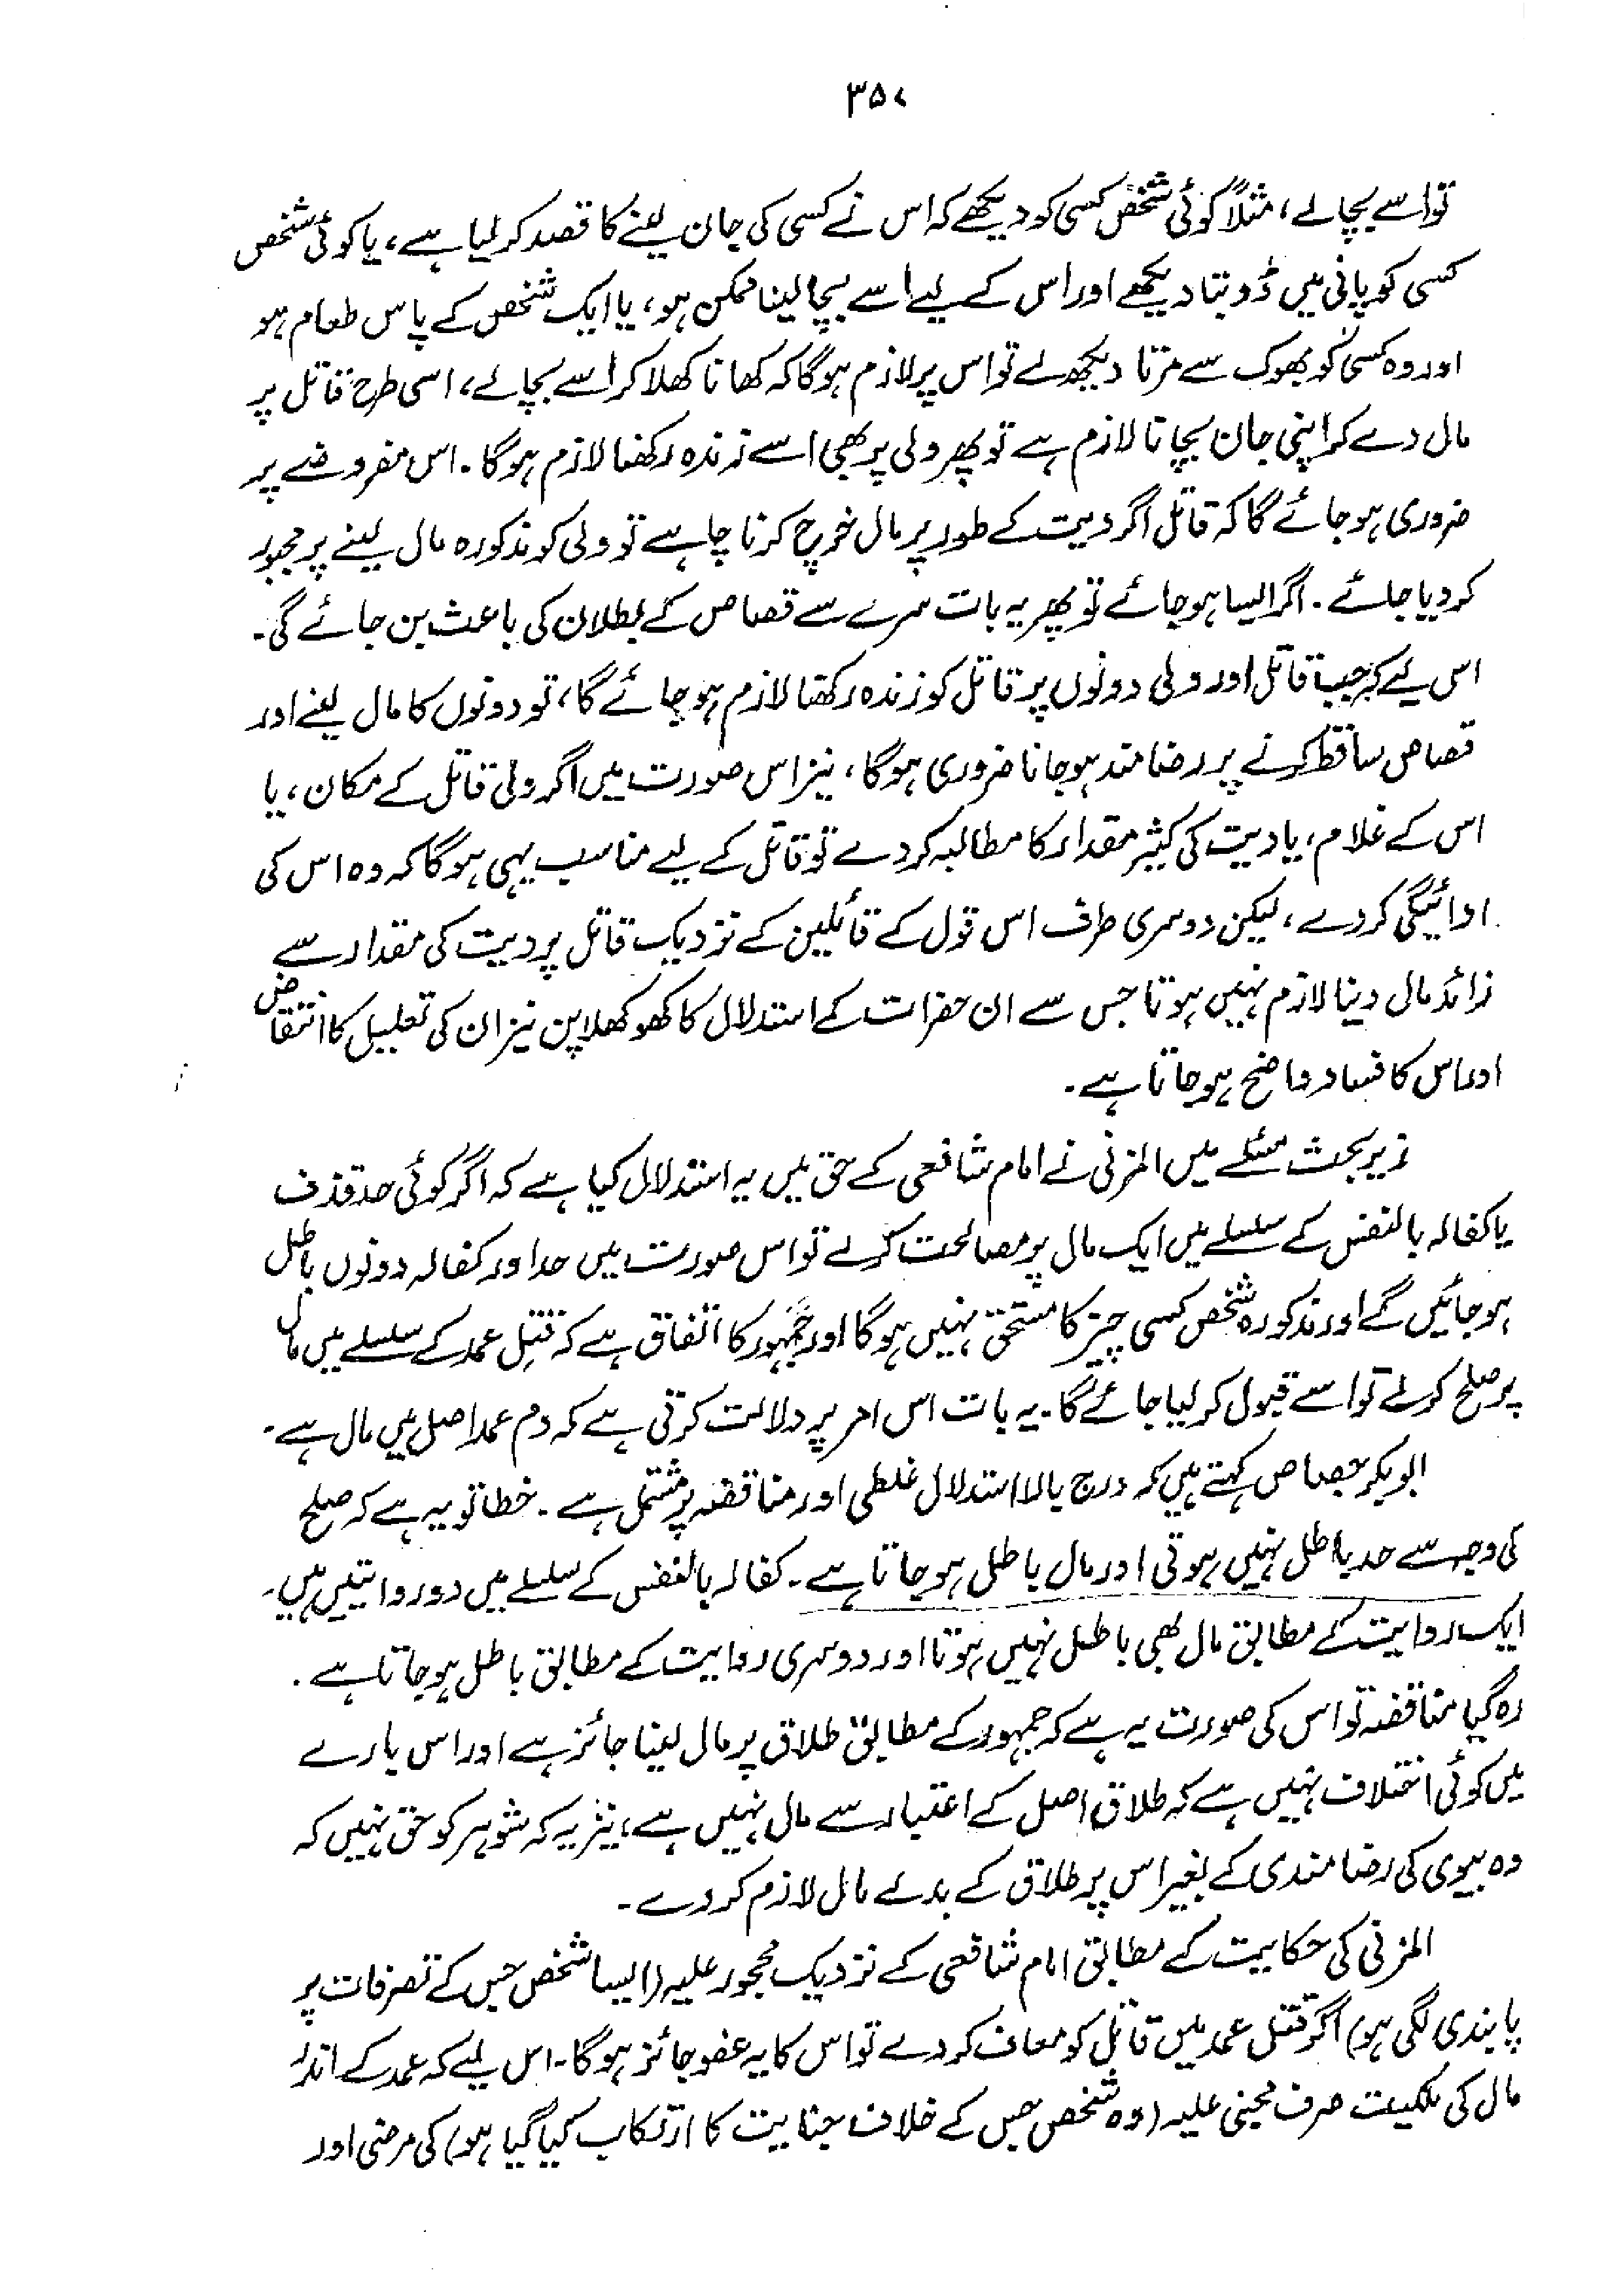 ۳۵۷
تو اسے بچالے، مثلاً کوئی شخص کسی کو دیکھے کہ اس نے کسی کی جان لینے کا قصد کر لیا ہے، یا کوئی شخص
کسی کو پانی میں ڈوبتا دیکھے اور اس کے لیے اسے بچا لینا ممکن ہو، یا ایک شخص کے پاس طعام ہو
اور وہ کسی کو بھوک سے مرتا دیکھ لے تو اس پر لازم ہوگا کہ کھانا کھلا کر اسے بچالے، اسی طرح قاتل پر
مال دے کر اپنی جان بچانا لازم ہے تو پھر ولی پر بھی اسے زندہ رکھنا لازم ہوگا۔ اس مفروضے پر
ضروری ہو جائے گا کہ قاتل اگر دیت کے طور پر مال خرچ کرنا چاہے تو ولی کو مذکورہ مال لینے پر مجبور
کر دیا جائے۔ اگر ایسا ہو جائے تو پھر یہ بات سرے سے قصاص کے بطلان کی باعث بن جائے گی۔
اس لیے کہ جب قاتل اور ولی دونوں پر قاتل کو زندہ رکھنا لازم ہو جائے گا، تو دونوں کا مال لینے اور
قصاص ساقط کرنے پر رضامند ہو جانا ضروری ہوگا، نیز اس صورت میں اگر ولی قاتل کے مکان، یا
اس کے غلام، یا دیت کی کثیر مقدار کا مطالبہ کر دے تو قاتل کے لیے مناسب یہی ہوگا کہ وہ اس کی
ادائیگی کر دے، لیکن دوسری طرف اس قول کے قائلین کے نزدیک قاتل پر دیت کی مقدار سے
زائد مال دینا لازم نہیں ہوتا جس سے ان حضرات کے استدلال کا کھوکھلا پن نیز ان کی تعلیل کا انتقاض
اور اس کا فساد واضح ہو جاتا ہے۔
زیر بحث مسئلے میں المزنی نے امام شافعی کے حق میں یہ استدلال کیا ہے کہ اگر کوئی حد قذف
یا کفالہ بالنفس کے سلسلے میں ایک مال پر مصالحت کرلے تو اس صورت میں حد اور کفالہ دونوں باطل
ہو جائیں گے اور مذکورہ شخص کسی چیز کا مستحق نہیں ہوگا اور جمہور کا اتفاق ہے کہ قتل عمد کے سلسلے میں مال
پر صلح کرلے تو اسے قبول کر لیا جائے گا۔ یہ بات اس امر پر دلالت کرتی ہے کہ دم عمد اصل میں مال ہے۔
ابوبکر جصاص کہتے ہیں کہ درج بالا استدلال غلطی اور مناقضہ پر مشتمل ہے۔ خطا تو یہ ہے کہ صلح
کی وجہ سے حد باطل نہیں ہوتی اور مال باطل ہو جاتا ہے۔ کفالہ بالنفس کے سلسلے میں دو روایتیں ہیں۔
ایک روایت کے مطابق مال بھی باطل نہیں ہوتا اور دوسری روایت کے مطابق باطل ہو جاتا ہے۔
رہ گیا مناقضہ تو اس کی صورت یہ ہے کہ جمہور کے مطابق طلاق پر مال لینا جائز ہے اور اس بارے
میں کوئی اختلاف نہیں ہے کہ طلاق اصل کے اعتبار سے مال نہیں ہے، نیز یہ کہ شوہر کو حق نہیں کہ
وہ بیوی کی رضامندی کے بغیر اس پر طلاق کے بدلے مال لازم کر دے۔
المزنی کی حکایت کے مطابق امام شافعی کے نزدیک محجور علیہ (ایسا شخص جس کے تصرفات پر
پابندی لگی ہو) اگر قتل عمد میں قاتل کو معاف کر دے تو اس کا یہ عفو جائز ہوگا۔ اس لیے کہ عمد کے اندر
مال کی ملکیت صرف مجنی علیہ (وہ شخص جس کے خلاف جنایت کا ارتکاب کیا گیا ہو) کی مرضی اور